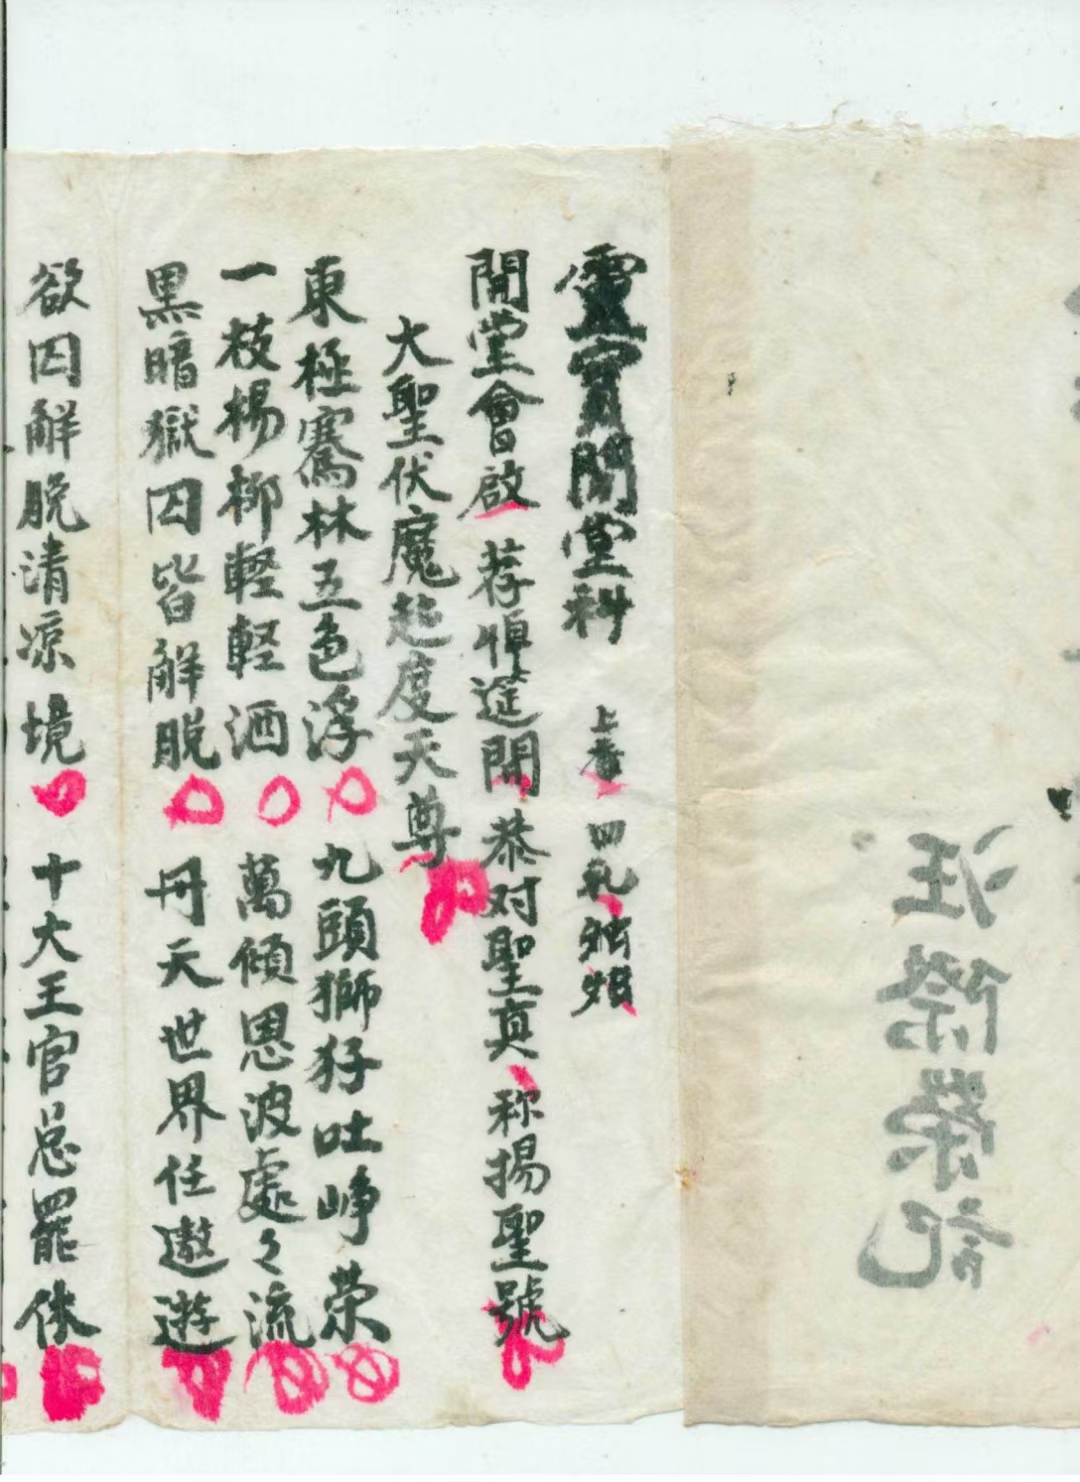 靈寳開堂科 上香 四礼
開堂會啟 荐悼筵開 恭对聖真 称揚聖號
大聖伏魔起度天尊
東極騫林五色浮 九頭獅犴吐崢荣
一枝楊柳輕輕洒 萬傾恩波處々流
黒暗獄囚皆解脱 冊天世界任遨遊
欲囚觧脱清凉境 十大王官总罷休
汪際榮記